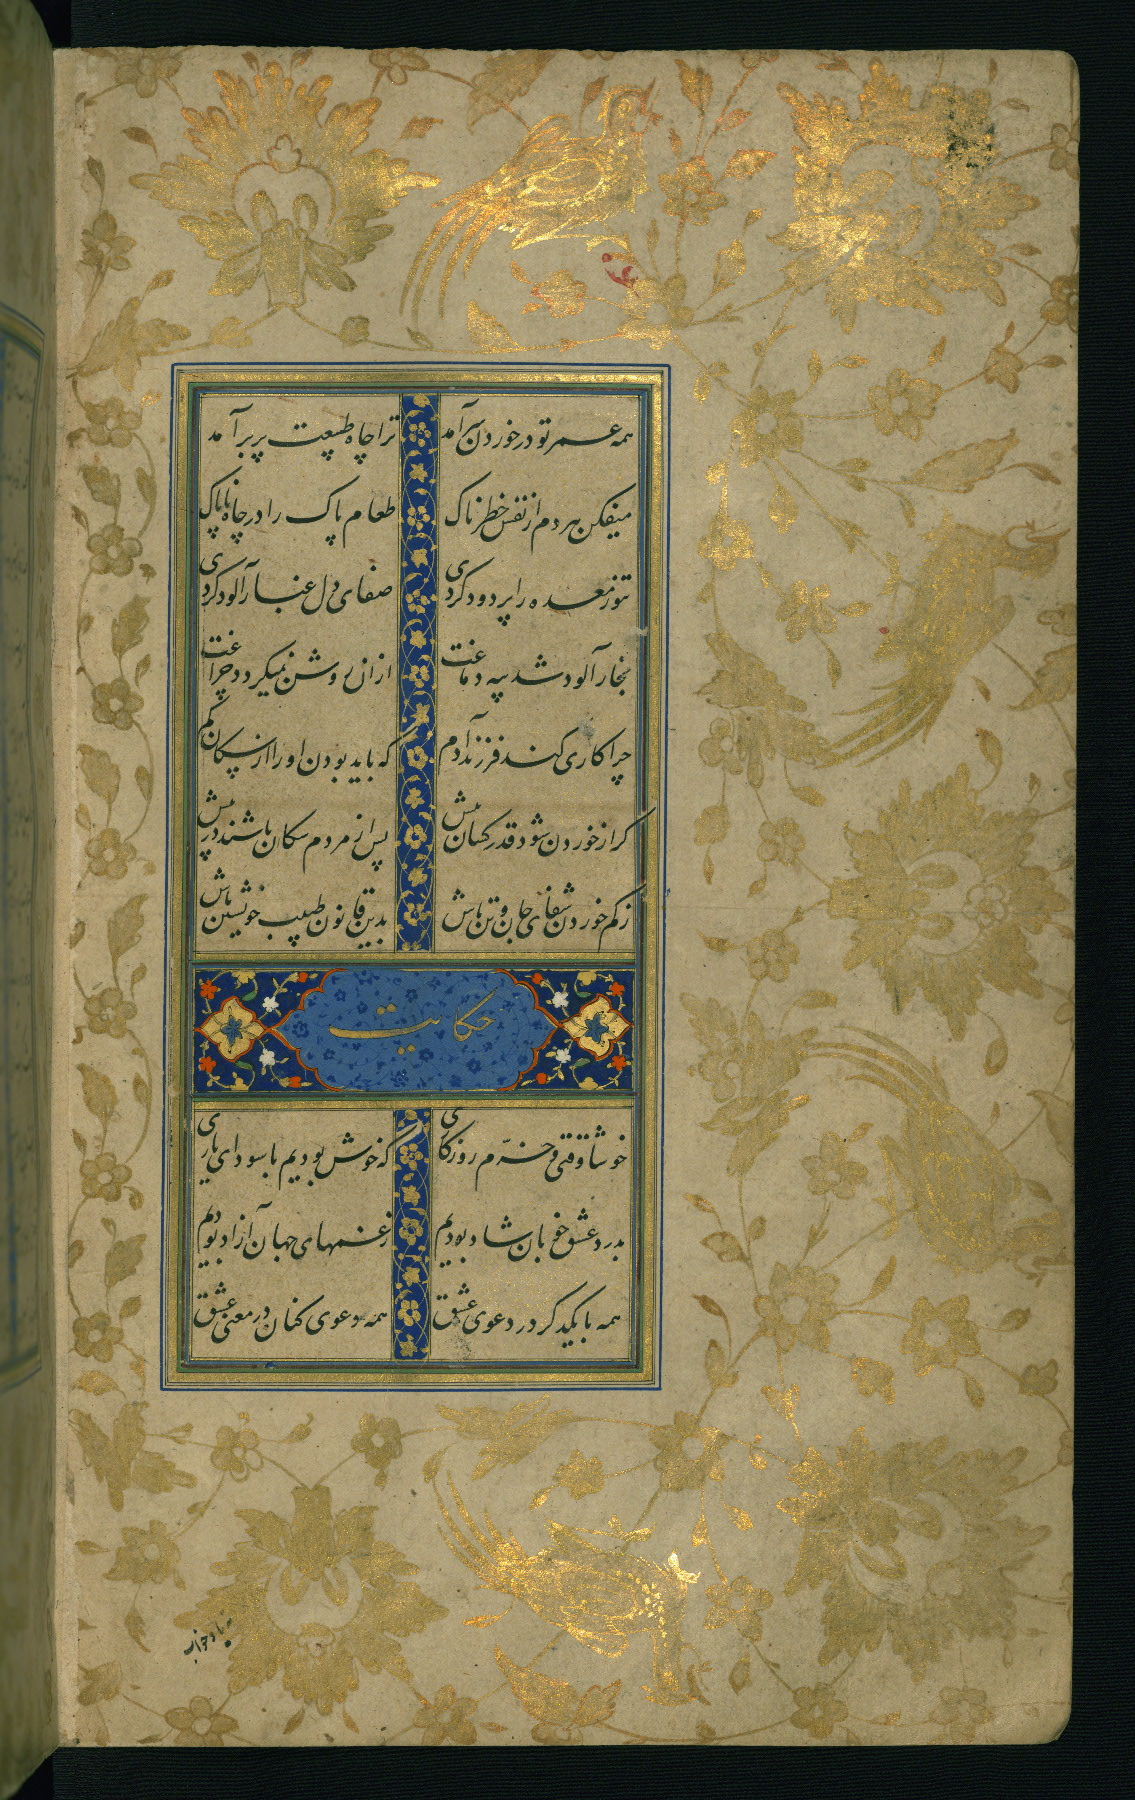 همه عمر تو در خوردن سرآمد ترا چاه طبیعت پر برآمد
میفکن هر دم از نفس خطرناک طعام پاک را در چاه ناپاک
تنور معده را پر دود کردی صفای دل غبارآلود کردی
بخارآلود شد سیه دماغت ازان روشن نمیگردد چراغت
چرا کاری کند فرزند آدم که باید بودن او را از سکان کم
کر از خوردن شود قدر کسان بیش پس از مردم سکان باشند در پیش
ز کم خوردن شفای جان و تن باش بدین قانون طبیب خویشتن باش
حکایت
خوشا وقتی و خرم روزکاری که خوش بودیم با سودای یاری
بدرد عشق خوبان شاد بودیم ز غمهای جهان آزاد بودیم
همه با یکدیکر در دعوی عشق همه دعوی کنان در معنی عشق